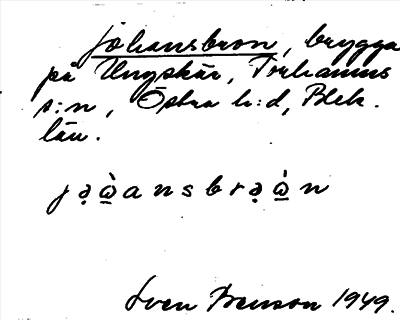 Johansbron, brygga
på Ungskär, Torhamns
s:n, Östra h:d, Blek.
län.
j ạ ὼ̱ a n s b r ạ ὼ̱ n
Sven Benson 1949.